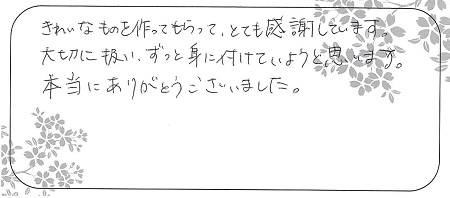 きれいなものを作ってもらって、とても感謝しています。
大切に扱い、ずっと身に付けていようと思います。
本当にありがとうございました。